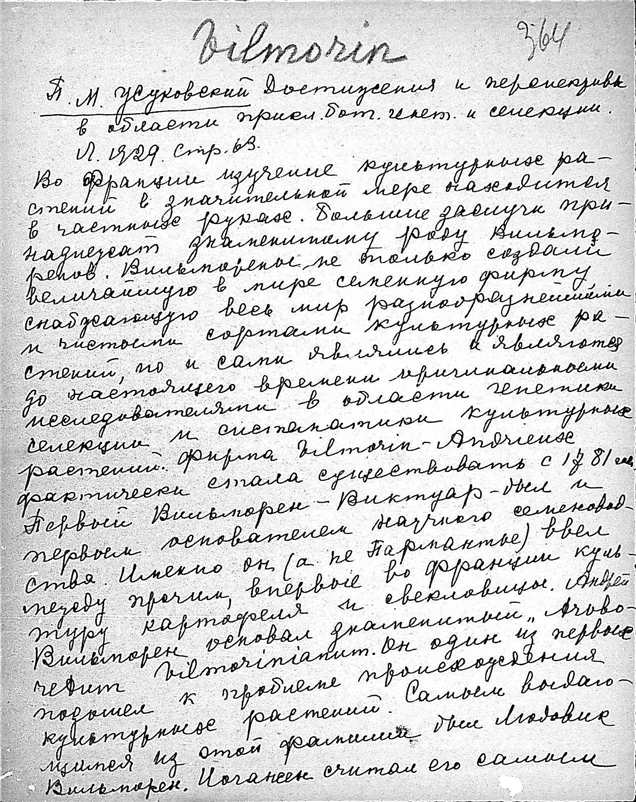 Vilmorin
364
П. М. Жуковский Достижения и перспективы
в области прикл. бот. генет. и селекции.
Л. 1929. Стр. 63.
Во Франции изучение культурных ра-
стений в значительной мере находится
в частных руках. Большие заслуги при-
надлежат знаменитому роду Вильмо-
ренов. Вильморены не только создали
величайшую в мире семенную фирму
снабжающую весь мир разнообразнейшими
и чистыми сортами культурных ра-
стений, но и сами являлись и являются
до настоящего времени оригинальными
исследователями в области генетики
селекции и систематики культурных
растений. Фирма Vilmorin-Andrieux
фактически стала существовать с 1781
Первый Вильморен-Виктуар-был и
первым основателем научного семеновод-
ства. Именно он (а не Пармантье) ввел
между прочим, впервые во Франции куль-
туру картофеля и свекловицы. Андрей
Вильморен основал знаменитый „
Vilmorinianum. Он один из первых
подошел к проблеме происхождения
культурных растений. Самым выдаю-
щимся из этой фамилии был Людовик
Вильморен. Иогансен считал его самым